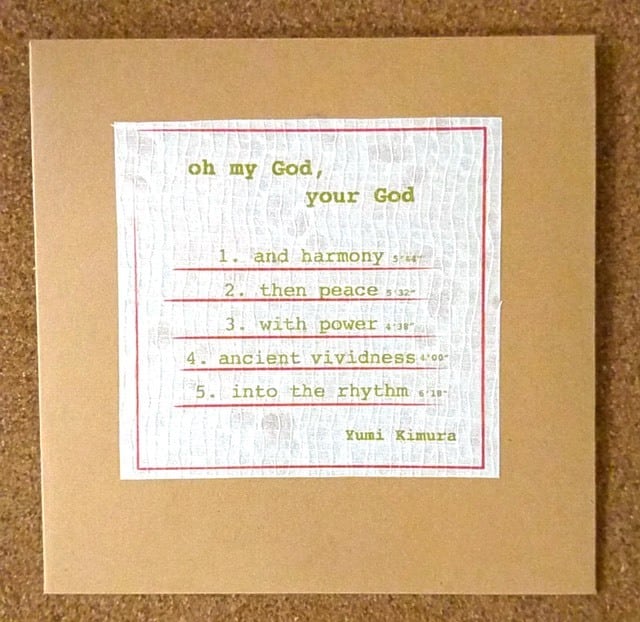 oh my God,
your God
1. and harmony 5'44"
2. then peace 5'32"
3. with power 4'38"
4. ancient vividness 4'00"
5. into the rhythm 6'18"
Yumi Kimura